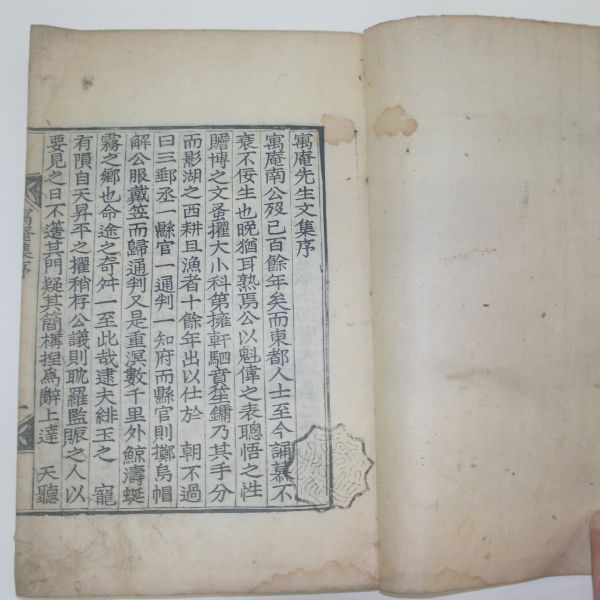 寓庵先生文集序
寓庵南公歿已百餘年矣而東都人士至今誦慕不
衰不佞生也晚猶耳熟焉公以魁偉之表聰悟之性
贍博之文蚤擢大小科第擁軒駟賁笙鏞乃其手分
而影湖之西耕且漁者十餘年出以仕於 朝不過
曰三郵丞一縣官一通判一知府而縣官則擲烏帽
解公服戴笠而歸通判又是重溟數千里外鯨濤蜒
霧之鄉也命途之奇舛一至此哉逮夫緋玉之 寵
有隕自天昇平之擢稍存公議則耽羅監賑之人以
要見之日不躚其門疑其簡構捏爲辭上達 天聽
寓庵集序
一